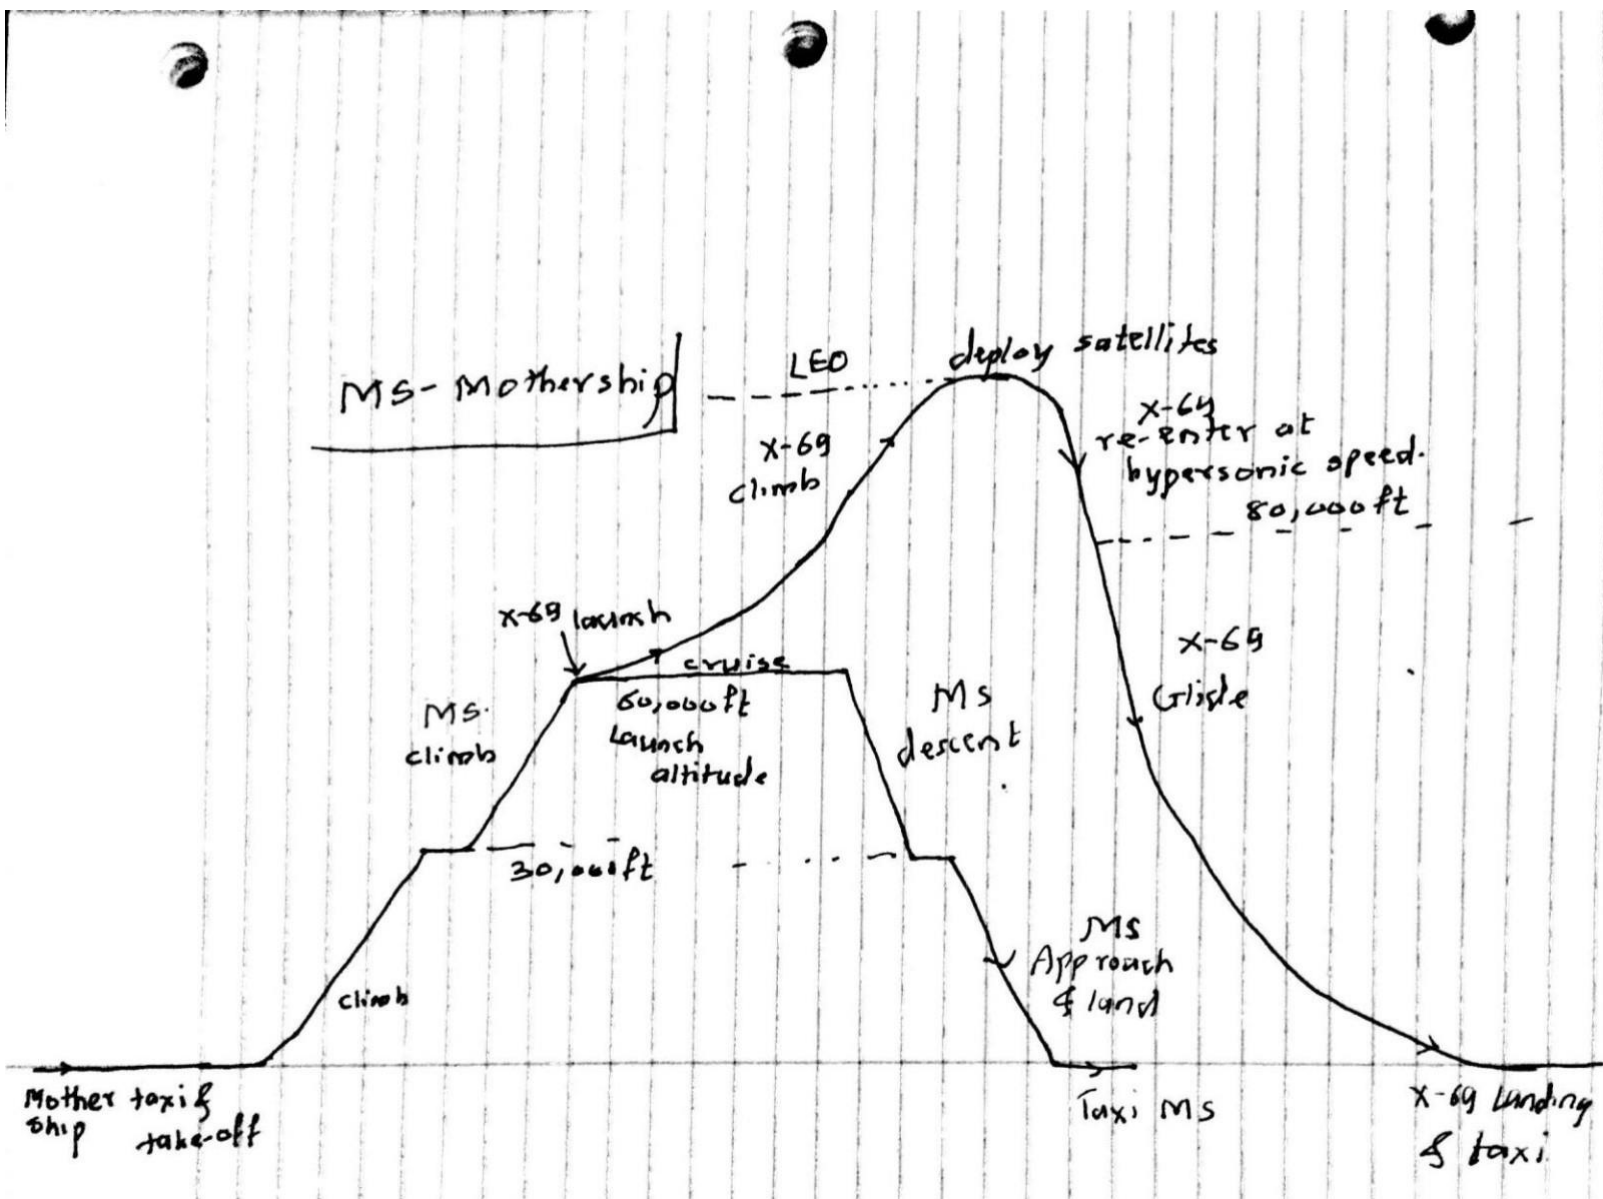 MS- Mothership
LEO
deploy satellites
X-69
climb
X-69
re-enter at
hypersonic speed.
80,000ft
X-69 launch
cruise
60,000ft
Launch
altitude
MS.
climb
MS
descent
X-69
Glide
30,000ft
climb
MS
Approach
& land
Mother taxi &
ship take-off
Taxi MS
X-69 Landing
& taxi